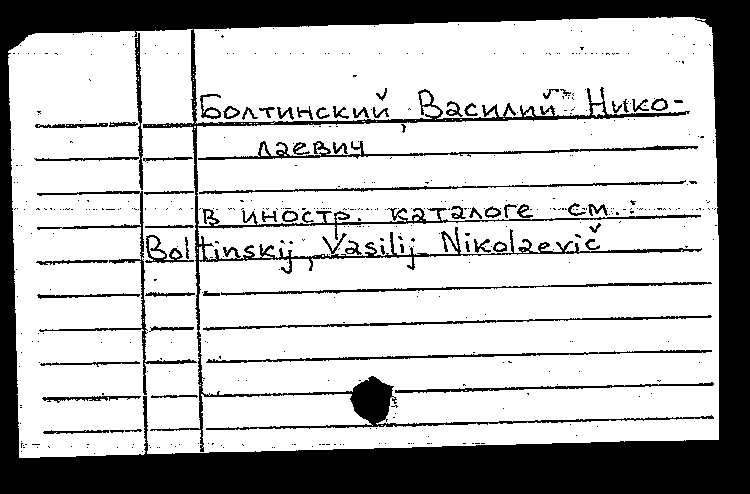 Болтинский, Василий Нико-
лаевич
в иностр. каталоге см.:
Boltinskij, Vasilij Nikolaevič